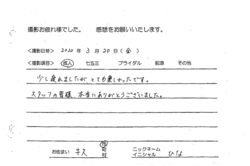 撮影お疲れ様でした。 感想をお願いいたします。
<撮影日時> 2020 年 3 月 20 日 (金)
<撮影項目> 成人 七五三 ブライダル 記念 その他
少し疲れましたが とても楽しかったです。
スタッフの皆様 本当にありがとうございました。
ニックネーム
イニシャル ひな